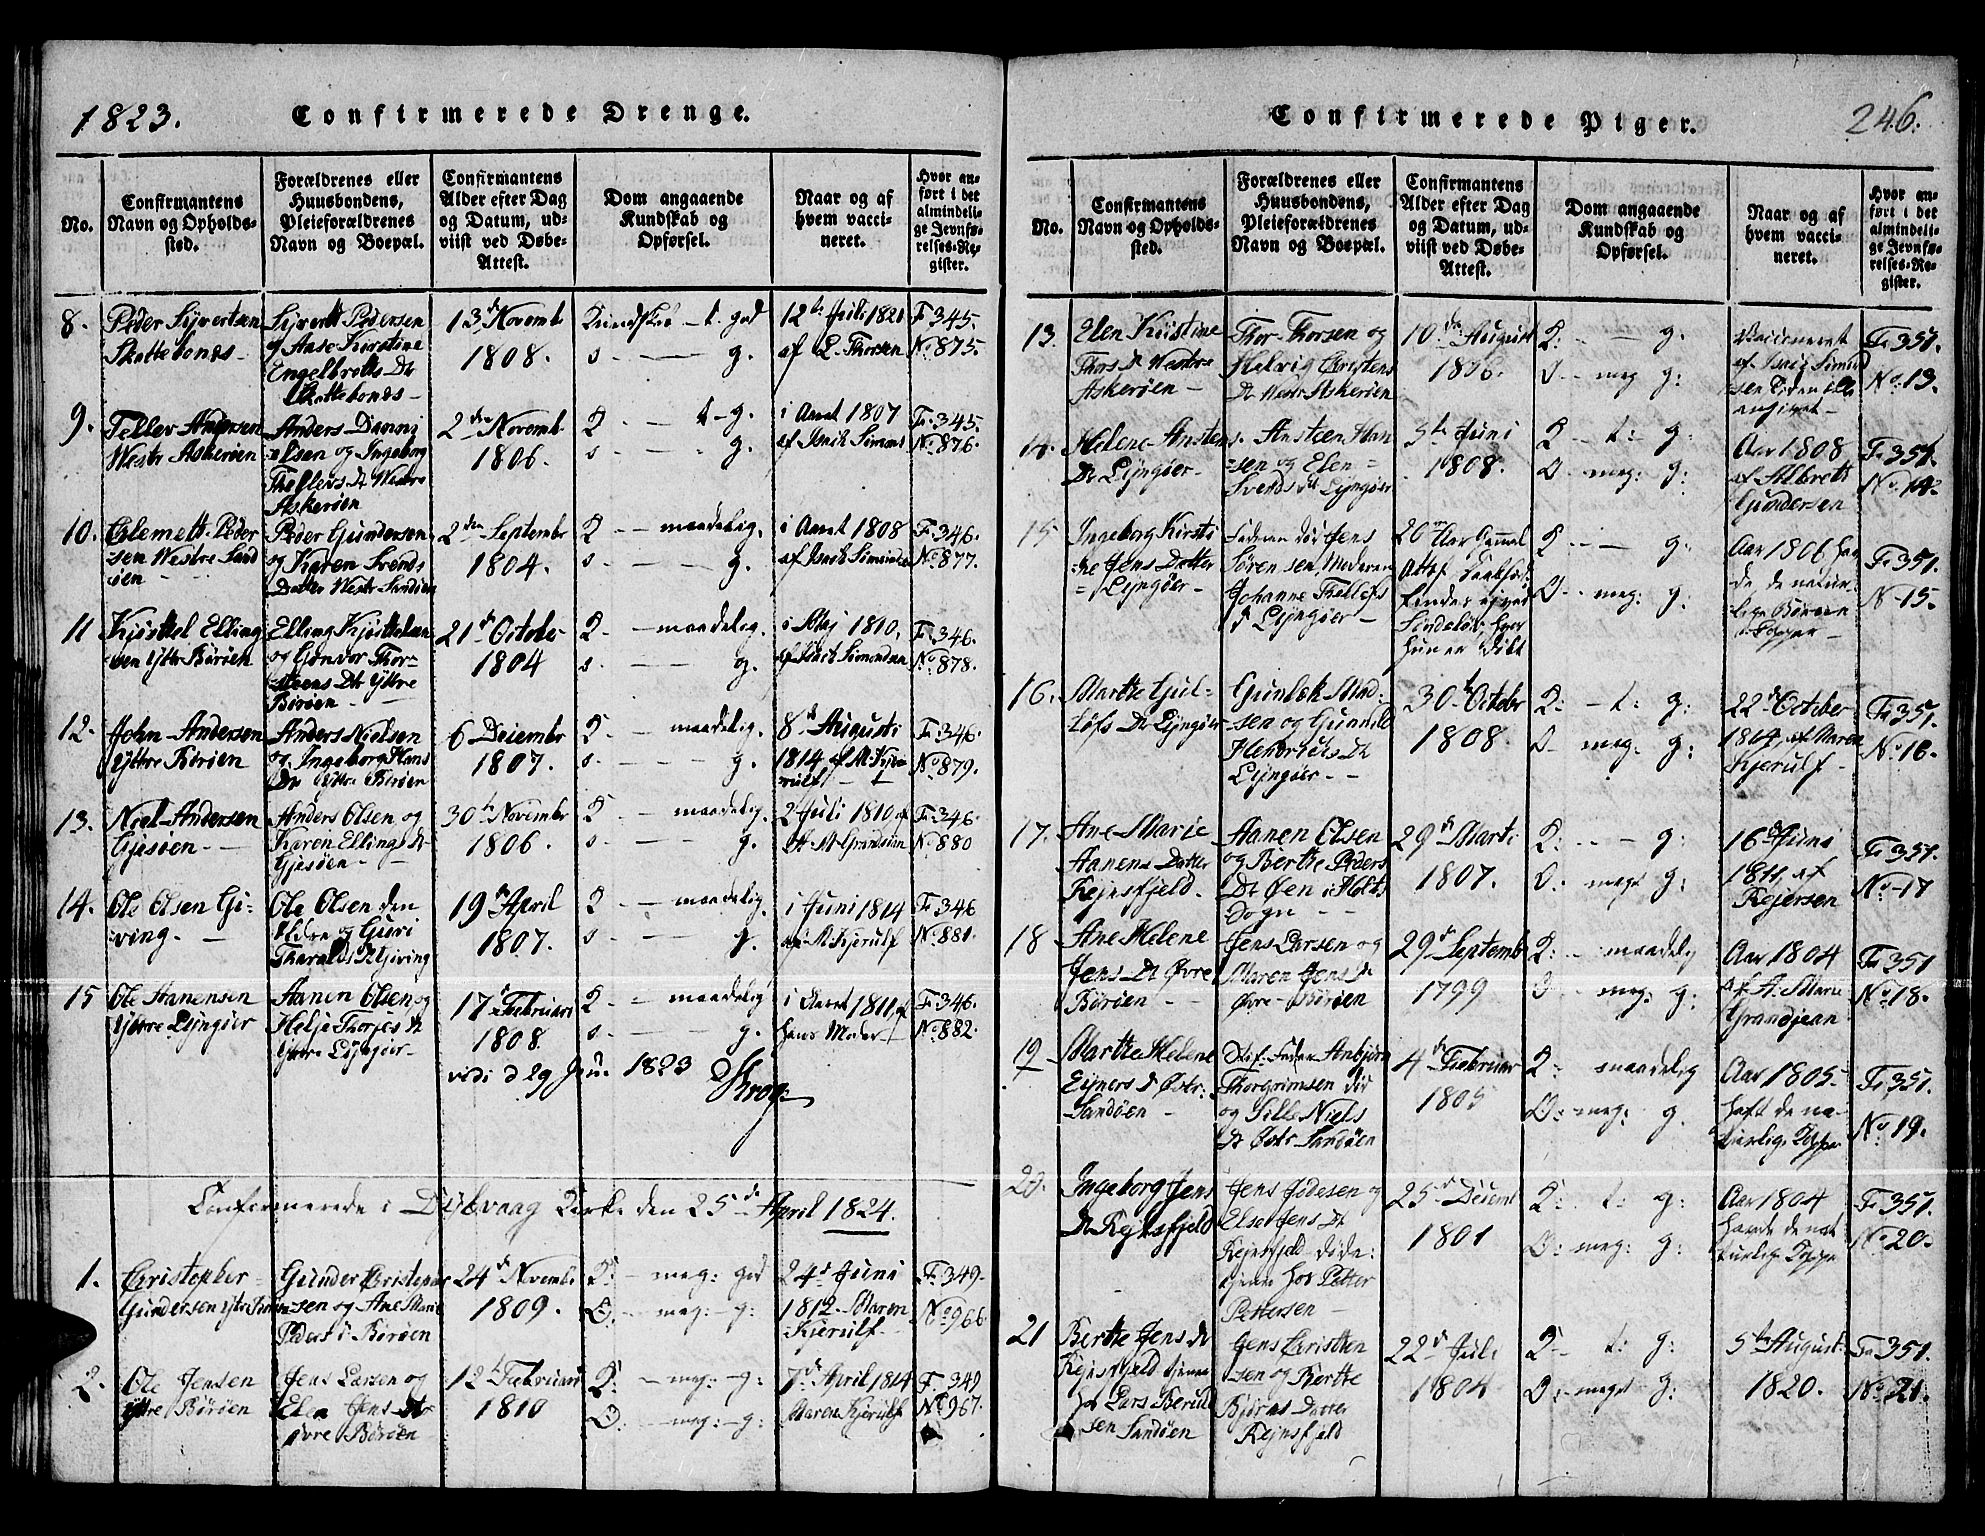 1823.
Confirmerede Drenge.
No.
Confirmantens
Navn og Opholds-
sted.
Forældrenes eller
Huusbondens,
Pleieforældrenes
Navn og Boepæl.
Confirmantens
Alder efter Dag
og Datum, ud-
viist ved Døbe-
Attest.
Dom angaaende
Kundskab og
Opførsel.
Naar og af
hvem vacci-
neret.
Hvor an-
ført i det
almindeli-
ge Jevnfø-
relses-Re-
gister.
8.
Peder Syvertsen
Skottebonds-
Syvert Pedersen
og Anse Kirstine
Engelbretts Dr
Skottebonds-
13d Novemb
1808.
Kundskb - t. god
s. - - g.
12te Juli 1821
af L. Thorsen
F. 345.
No. 875.
9.
Tellev Andersen
Westr Askerøen
Anders Danni
elsen og Ingeborg
Thellevs Dr Westre
Askerøen
2den Novemb
1806.
K - - t - g.
s - - . g.
i Aaret 1807
af Isaik Simons
F. 345.
No. 876.
10.
Clemett Peder
sen Westre Sand
øen -
Peder Gundersen
og Karen Svends
Datter Westr Sandøen
2den Septembr
1804.
K - - maadelig.
s - - g.
i Aaret 1808
af Isaik Simonds
F. 346.
No. 877.
11
Kjøttel Elling
sen Yttre Børøen
Elling Kjøttelsen
og Gonvor Thor-
steens Dr Yttre
Børøen -
21de October
1804
K - - maadelig.
s - - g.
i Maj 1810,
af Isaik Simondsen
F. 346.
No. 878.
12.
John Andersen
Yttre Børøen
Anders Nielsen
og Ingeborg Hans
Dr Yttre Børøen
6 Decembr
1807.
K - - maadelig.
s. - - g.
8de Augusti
1814 af M. Kje
rulf -
F. 346.
No. 879.
13.
Niel Andersen
Gjesøen -
Anders Olsen og
Karen Ellings Dr
Gjesøen -
30te Novembr
1806.
K - - maadelig.
s. - - g.
2 Juli 1810 af
A. M. Grandsian
F. 346.
No. 880
14.
Ole Olsen Gi-
ving. -
Ole Olsen den
eldre og Guri
Tharalds Dr Giving
19de April
1807.
K - - maadelig.
s. - - g.
i Juni 1814
af M. Kjerulf
F. 346
No. 881.
15
Ole Aanensen
Yttre Lyngøer
Aanen Olsen og
Helje Thorjes Dr
Yttre Lyngøer-
17de Februari
1808
K - = maadelig
s. - - g.
i Aaret 1811, af
hans Moder
F. 346.
No. 882.
vidi d 29 Jun. 1823 Krog
Confirmerede i Dybvaag Kirke den 25de April 1824.
1.
Christopher
Gundersen Yttre
Gunder Christophe
rsen og Ane Marie
Peders Dr Børøen
24de Novembr
1809.
K: - meg: god
O: - meg: - g:
24de Juni
1812 Maren
Kjerulf -
F. 349.
No. 966.
2.
Ole Jensen
Yttre Børøen
Jens Larsen og
Elen Jens Dr
øvre Børøen
12te Februari
1810
K: - meg: - g:
O: - meg: - g:
7de April 1814
Maren Kjerulf
F. 349
No. 967.
Confirmerede Piger.
246.
No.
Confirmantens
Navn og Opholds-
sted.
Forældrenes eller
Huusbondens,
Pleieforældrenes
Navn og Boepæl.
Confirmantens
Alder efter Dag
og Datum, ud-
viist ved Døbe-
Attest.
Dom angaaende
Kundskab og
Opførsel.
Naar og af
hvem vacci-
neret.
Hvor an-
ført i det
almindeli-
ge Jevnfø-
relses-Re-
gister.
13.
Elen Kirstine
Thors Dr Westre
Askerøen -
Thor Thorsen og
Helvig Cristens
Dr Westr Askerøen
10de August
1806.
K: - - g.
O - meg g:
Vaccineret
af Isaik Simond
sen Tiden ikke
angivet -
F. 351.
No. 13.
14.
Helene Anstens
Dr Lyngøer-
Ansteen Han
=sen og Elen
Svends Dr Lyngøer
5te Juni
1808.
K - t: g:
O - meg: g:
Aar 1808
af Albrett
Gundersen
F. 351.
No. 14.
15
Ingeborg Kirsti
ne Jens Datter
Lyngøer -
Faderen død Jens
Sørensen, Moderen
Johanne Thellefs
Dr Lyngøer -
20 Aar Gammel
hun er Døbt
K - - g:
O - meg: g:
Aar 1806 hav
de de natur
lige Børne
Kopper -
F. 351.
No 15.
16.
Marthe Gul-
løfs Dr Lyngøer
Gunlæk Mad-
sen og Gunnild
Lyngøer - -
30te October
1808.
K: - t: g:
O - meg: g:
22de October
1807 af Maren
Kjerulf -
F. 351.
No. 16.
17.
Ane Marie
Aanens Datter
Rejnsfjeld.
Aanen Olsen
og Berthe Peders
Dr Øen i Holts
Sogn - -
29de Marti
1807.
K: - - g:
O: - meget g:
16de Juni
1811 af
Rejersen
F. 351.
No. 17
18
Ane Helene
Jens Dr Øvre
Børøen - -
Jens Larsen og
Maren Jens Dr
Øvre Børøen
29de Septembr
1799
K: - maadelig
O - meg: g:
Aar 1804
af A: Marie
Grandjean
F. 351
No. 18.
19
Marthe Helene
Ejners Dr Østr:
Sandøen -
Stif-Fader Anbjørn
Thorgrimsen død
og Sille Niels
Dr Østr Sandøen
4de Februar
1805
K: maadelig
O: meg: g
Aar 1805
haft de na-
turlig. Kopper
F. 351.
No. 19.
20.
Ingeborg Jens
Dr Rejnsfjeld
Jens Jodesen og
Else Jens Dr
Rejnsfjeld døde:
tjener hos Petter
Pettersen -
25de Decemb
1801
K: - t: g:
O: meg: g:
Aar 1804
havde de nat
turlige Kopper
F. 351.
No. 20.
21
Berthe Jens Dr
Rejnsfjeld tjener
hos Lars Berul
sen Sandøen
Jens Cristen
sen og Berthe
Bjørns Datter
Rejnsfjeld
22de Juli
1804
K - t: g:
O: - meget g:
5te August
1820.
F. 351.
No. 21.